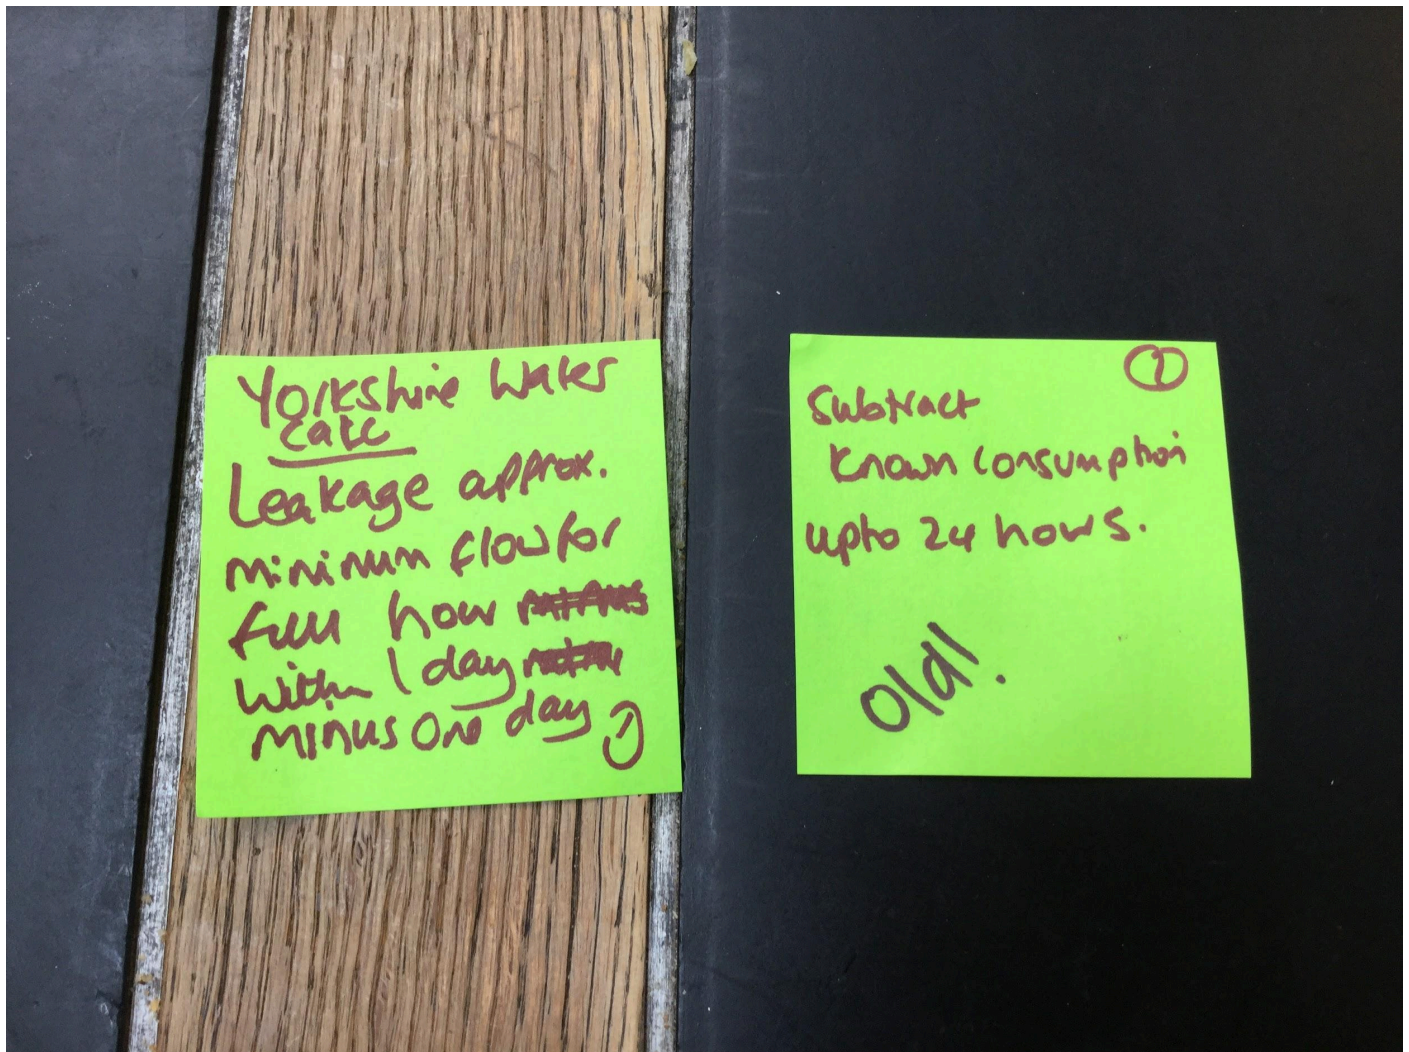 Yorkshire Water
calc
Leakage approx.
minimum flow for
full hour
within 1 day
minus one day
1
Subtract
known consumption
upto 24 hours.
Old!